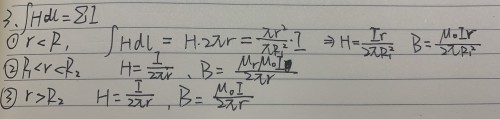 3. ∫Hdl = ΣI
① r<R₁ ∫Hdl = H·2πr = πr²/πR₁²·I ⇒ H= Ir/2πR₁² B= μ₀Ir/2πR₁²
② R₁<r<R₂ H= I/2πr , B= μᵣμ₀I/2πr
③ r>R₂ H= I/2πr , B= μ₀I/2πr